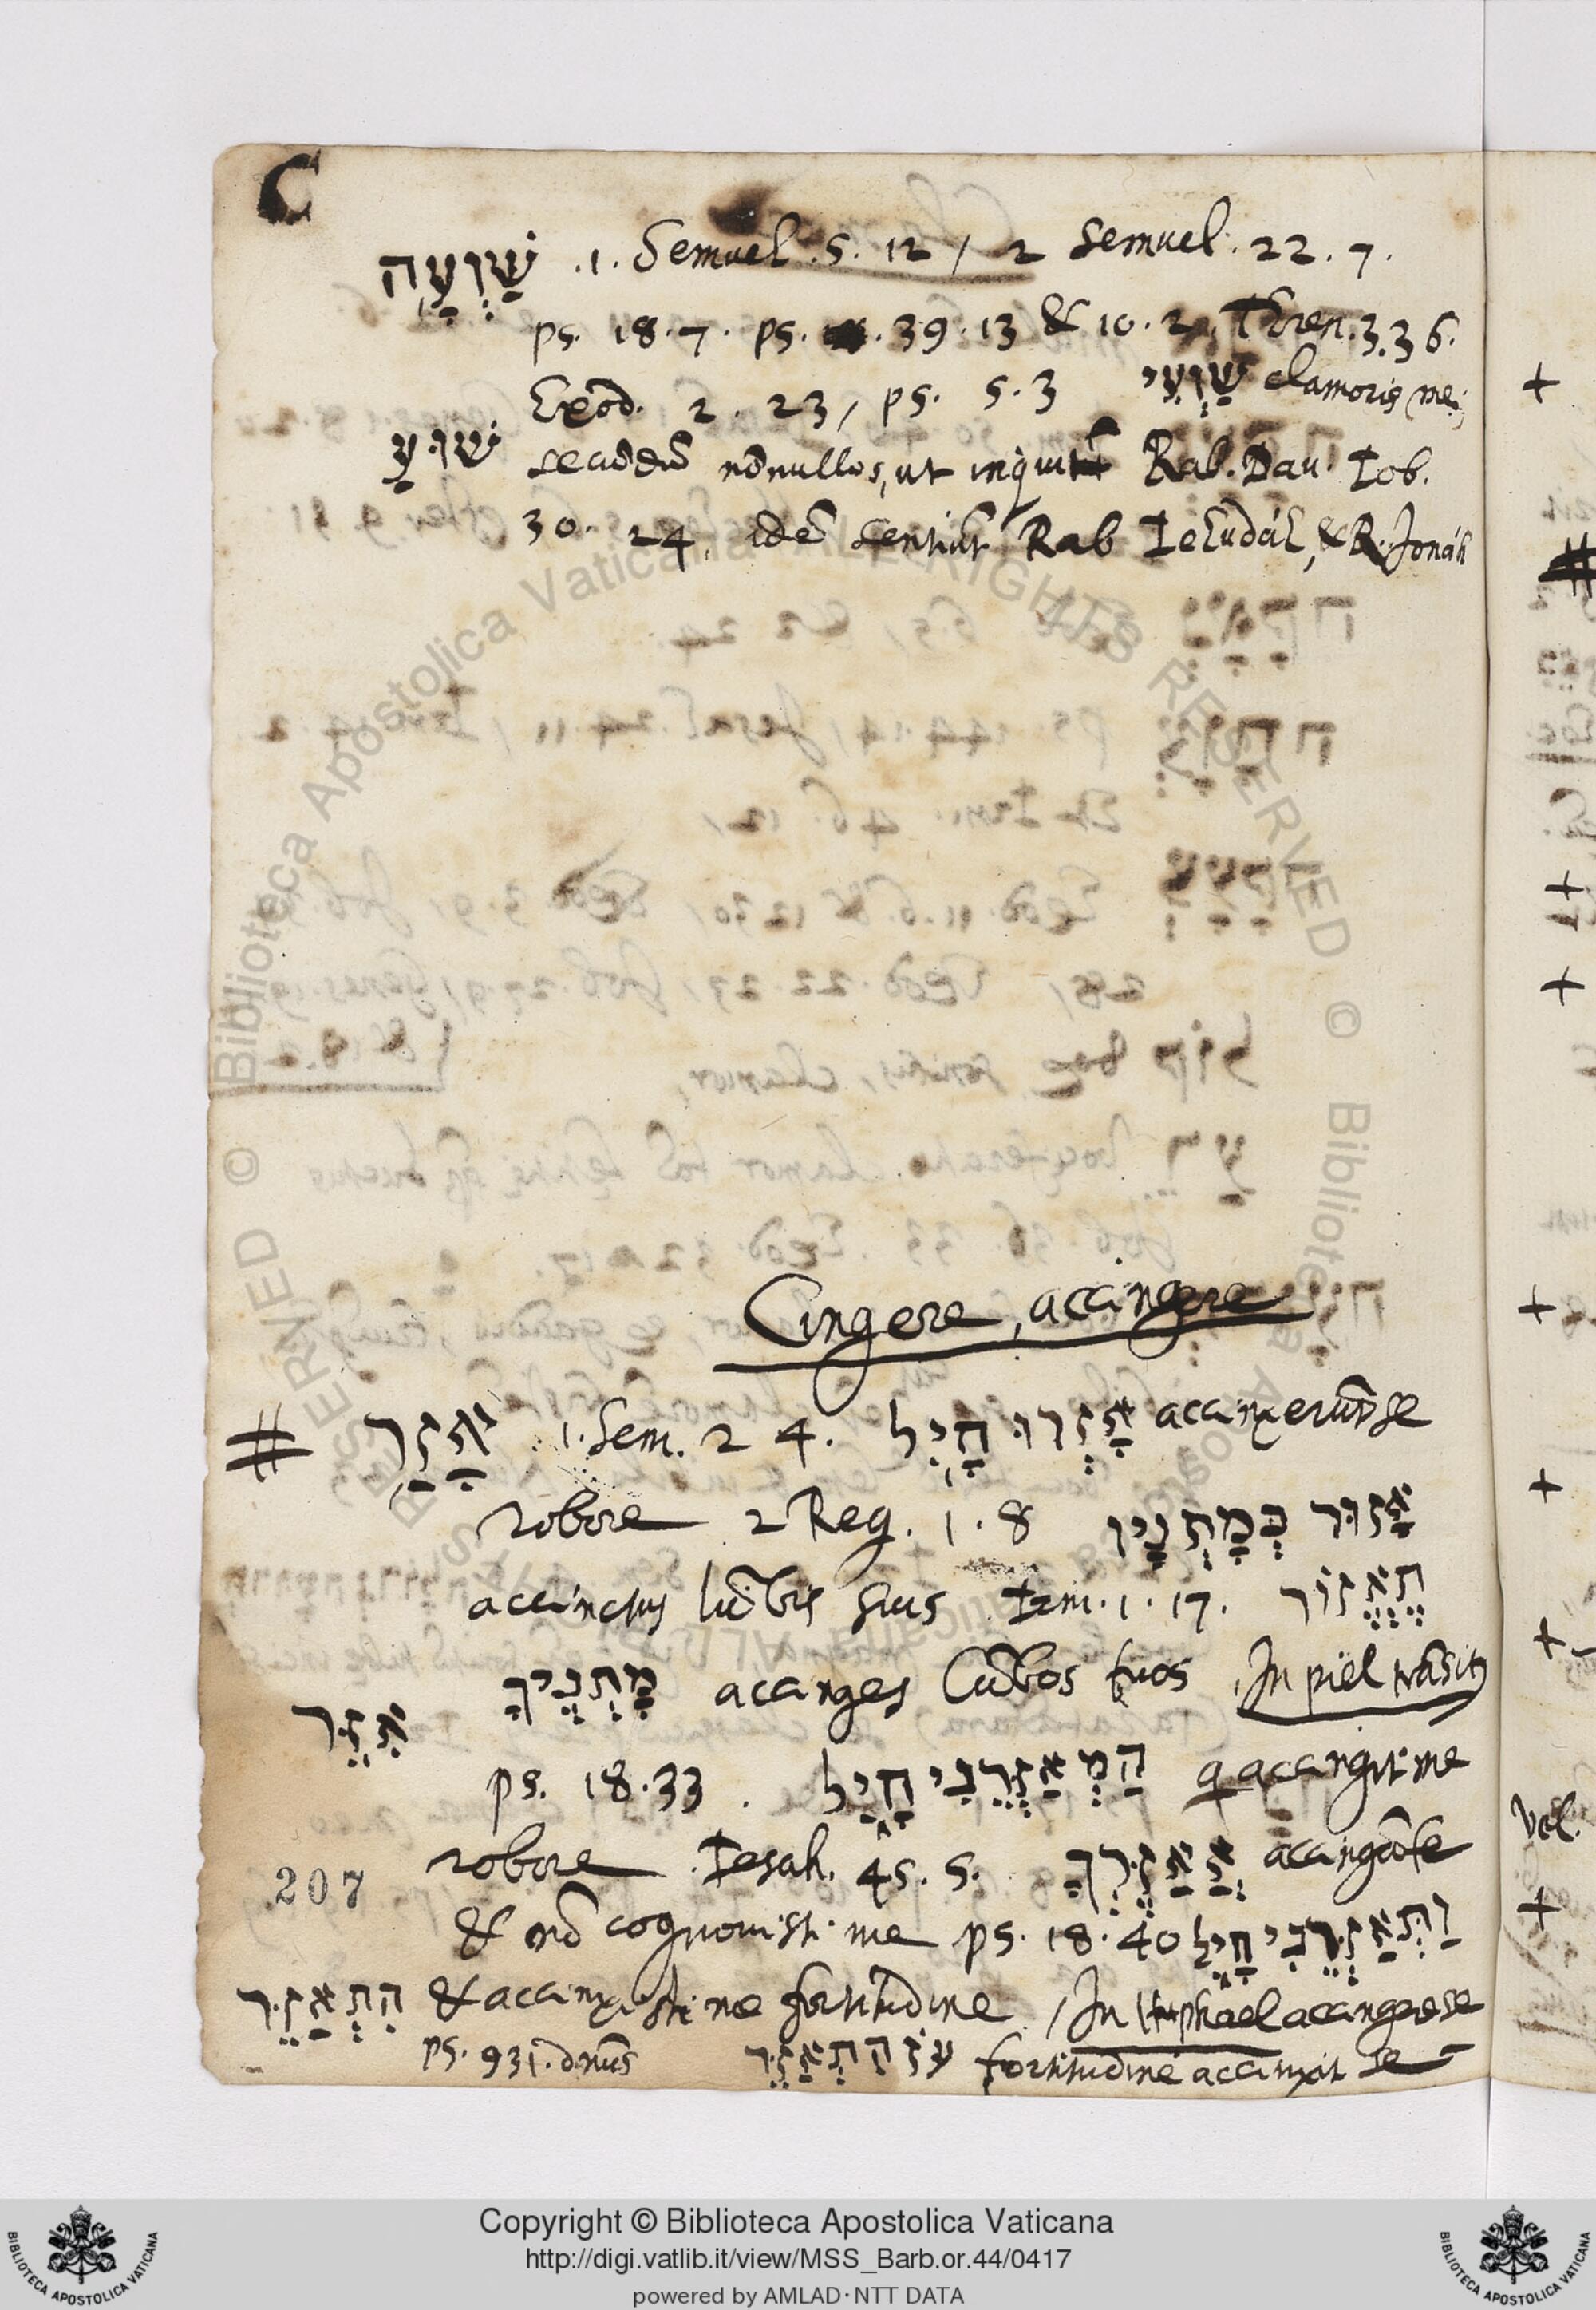 C
שַׁוְעָה .1. Semuel. 5. 12 / 2 Semuel. 22. 7.
ps. 18. 7. ps. 39. 13 & 10. 2, Thren. 3. 36.
Exod. 2. 23, ps. 5. 3 שַׁוְעִי clamoris mei
שׁוּעַ secūdū nōnullos, ut inquit Rab. Dau. Iob.
30. 24, idē sentiūt Rab Iehudáh, & R. Jonáh
Cingere, accingere
# אָזַר 1. Sem. 2 4. אָזְרוּ חָיִל accinxerūt se
robore 2 Reg. 1. 8 אָזוּר בְּמָתְנָיו
accinctus lūbis suis Irm. 1. 17. תֶּאֱזוֹר
מָתְנֶיךָ accinges lūbos tuos, In piel trāsit
אִזֵּר
ps. 18. 33. הַמְאַזְּרֵנִי חָיִל q accingit me
robore Iesah. 45. 5. אֲאַזֶּרְךָ accingā te
& nō cognouisti me ps. 18. 40 וַתְּאַזְּרֵנִי חָיִל
הִתְאַזֵּר & accinxisti me fortitudine, In hithphael accingere se
ps. 93 1. dn̄us עֹז הִתְאַזֵּר fortitudine accinxit se
207
+
#
+
+
+
+
+
Vel.
+
Biblioteca Apostolica Vaticana ALL RIGHTS RESERVED ©
Copyright © Biblioteca Apostolica Vaticana
http://digi.vatlib.it/view/MSS_Barb.or.44/0417
powered by AMLAD·NTT DATA
BIBLIOTECA APOSTOLICA VATICANA
BIBLIOTECA APOSTOLICA VATICANA